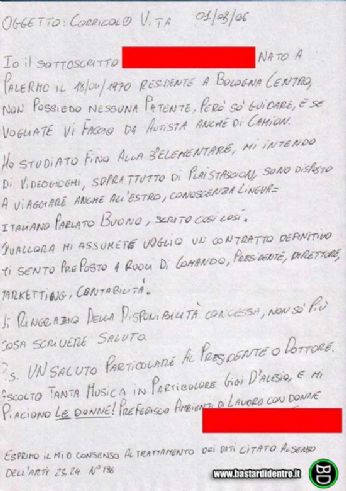 OGGETTO: CORRICOLO VITA 01/03/06
IO IL SOTTOSCRITTO NATO A
PALERMO IL 18/04/1970 RESIDENTE A BOLOGNA CENTRO,
NON POSSIEDO NESSUNA PATENTE, PERÒ SÒ GUIDARE, E SE
VOGLIATE VI FACCIO DA AUTISTA ANCHE DI CAMION.
HO STUDIATO FINO ALLA 3ª ELEMENTARE, MI INTENDO
DI VIDEOGIOGHI, SOPRATTUTTO DI SONO DISPOSTO
A VIAGGIARE ANCHE ALL'ESTRO, CONOSCENZA LINGUA=
ITALIANO PARLATO BUONO, SCRITO COSI COSÌ.
QUALLORA MI ASSUMETE VOGLIO UN CONTRATTO DEFINITIVO
MI SENTO PREPOSTO A RUOLI DI COMANDO, PRESIDENTE, DIRETTORE,
MARKETTING, CONTABILITÀ.
VI RINGRAZIO DELLA DISPONIBILITÀ CONCESSA, NON SÒ PIÙ
COSA SCRIVERE SALUTO.
P.S. UN SALUTO PARTICOLARE AL PRESIDENTE O DOTTORE.
ASCOLTO TANTA MUSICA IN PARTICOLORE GIGI D'ALESIO, E MI
PIACIONO LE DONNE! PREFERISCO AMBIENTI DI LAVORO CON DONNE
ESPRIMO IL MIO CONSENSO AL TRATTAMENTO DEI DATI CITATO AL SENSO
DELL'ARTE 23,24 N° 196
www.bastardidentro.it
BD